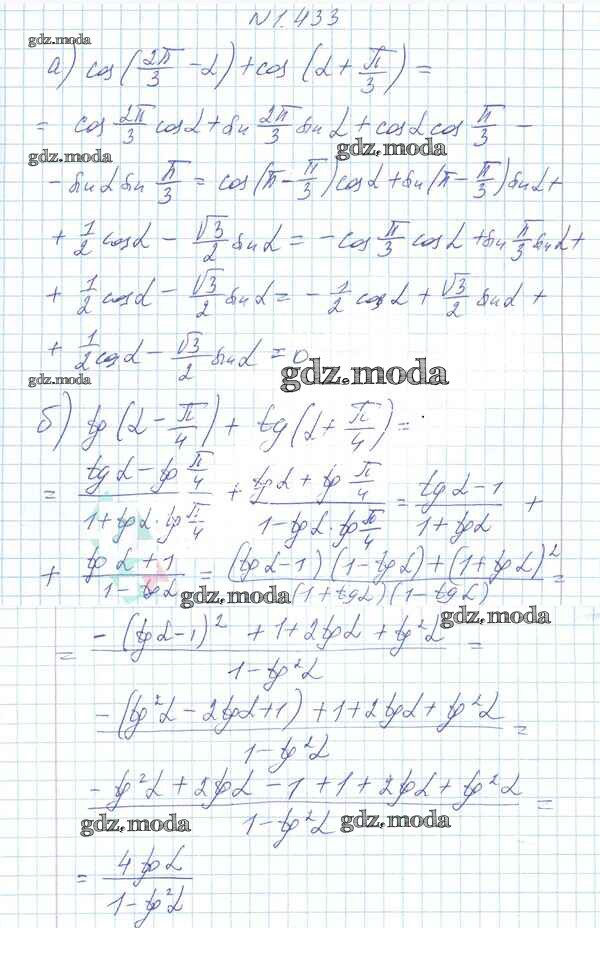 N 1.433
gdz.moda
а) cos(2π/3 - α) + cos(α + π/3) =
= cos 2π/3 cosα + sin 2π/3 sinα + cosα cos π/3 -
gdz.moda gdz.moda
- sinα sin π/3 = cos(π - π/3) cosα + sin(π - π/3) sinα +
+ 1/2 cosα - √3/2 sinα = - cos π/3 cosα + sin π/3 sinα +
+ 1/2 cosα - √3/2 sinα = - 1/2 cosα + √3/2 sinα +
+ 1/2 cosα - √3/2 sinα = 0
gdz.moda gdz.moda
б) tg(α - π/4) + tg(α + π/4) =
= (tgα - tg π/4)/(1 + tgα · tg π/4) + (tgα + tg π/4)/(1 - tgα · tg π/4) = (tgα - 1)/(1 + tgα) +
+ (tgα + 1)/(1 - tgα) = ((tgα - 1)(1 - tgα) + (1 + tgα)²)/((1 + tgα)(1 - tgα)) =
gdz.moda gdz.moda
= (-(tgα - 1)² + 1 + 2tgα + tg²α)/(1 - tg²α) =
(-(tg²α - 2tgα + 1) + 1 + 2tgα + tg²α)/(1 - tg²α) =
(-tg²α + 2tgα - 1 + 1 + 2tgα + tg²α)/(1 - tg²α) =
gdz.moda gdz.moda
= 4tgα/(1 - tg²α)